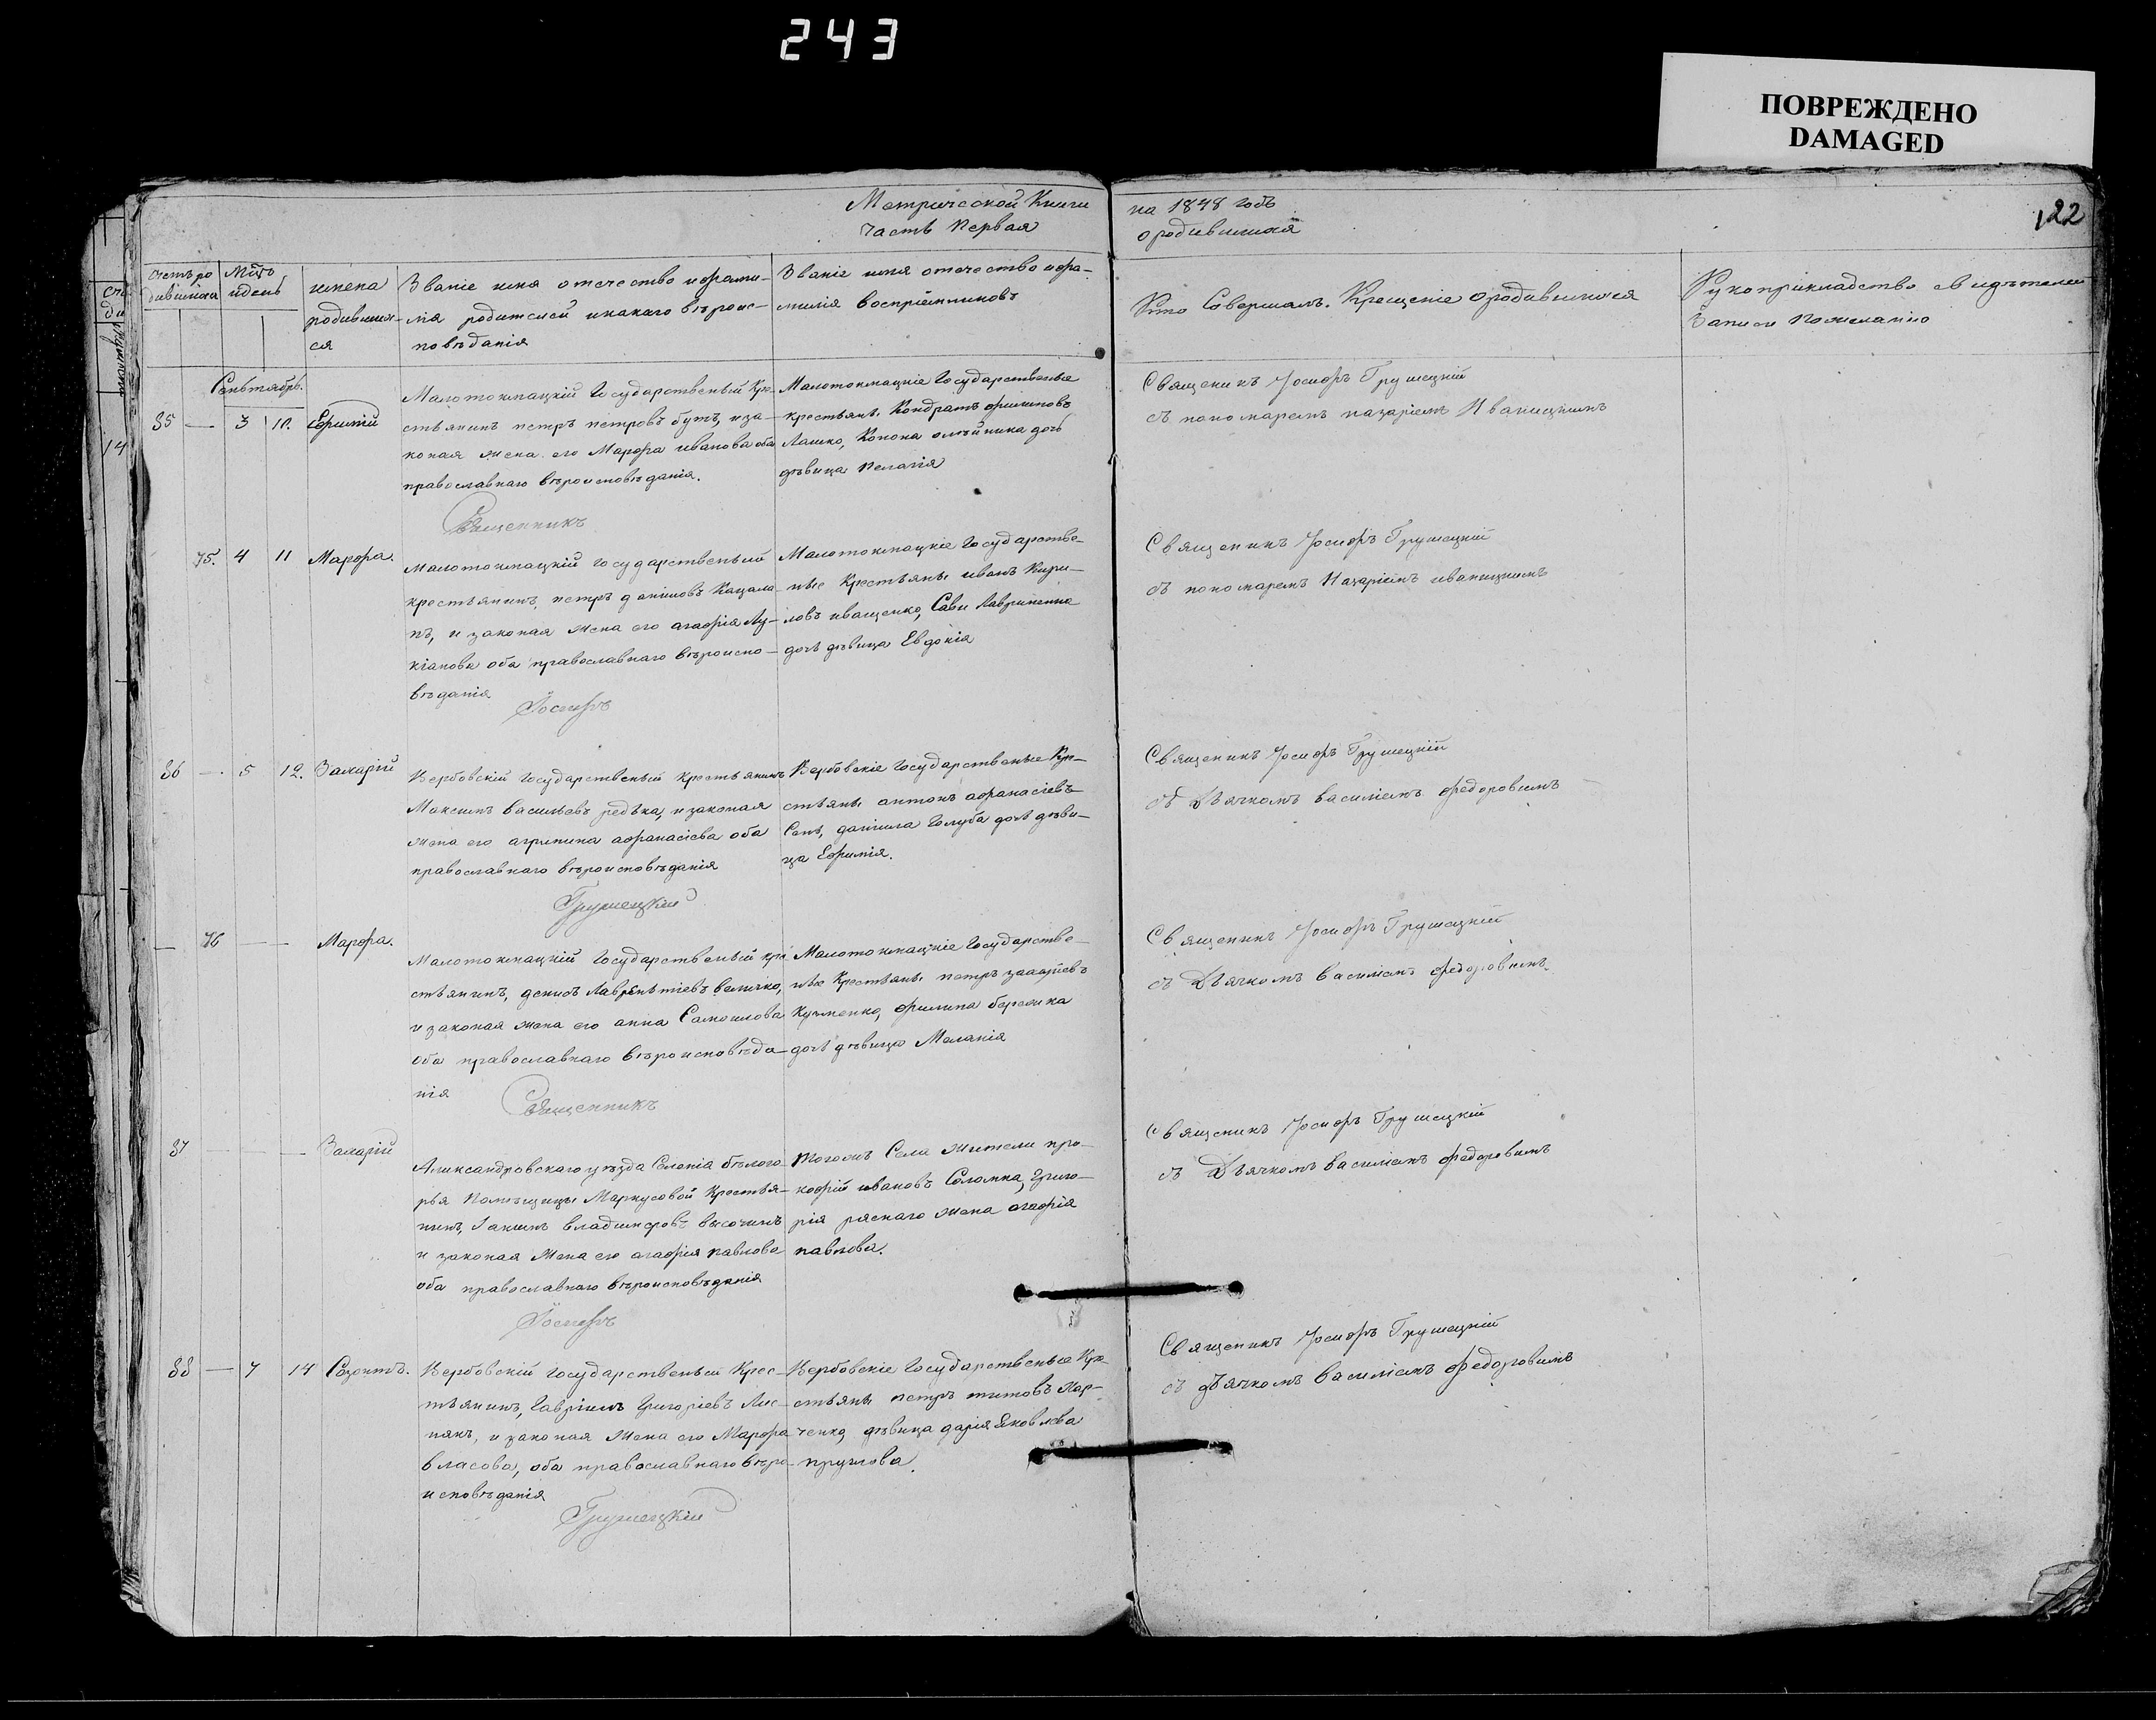 243
ПОВРЕЖДЕНО
DAMAGED
Метрической Книги
часть первая
на 1848 годъ
о родившихся
122
счетъ ро
дившихся
Мѣсць
и день
имена
родивших-
ся
Званіе имя отечество и фами-
лія родителей и какаго вѣроис-
повѣданія
Званіе имя отечество и фа-
милія воспріемниковъ
Кто Совершалъ Крещеніе о родившихся
Рукоприкладство свидѣтелей
Записи по желанію
Сентябрь.
85 — 3 10. Ефимій
Малотокмацкій Государственый Кре-
стьянинъ петръ петровъ бутъ, и за-
коная жена его Марфа иванова оба
православнаго вѣроисповѣданія.
Малотокмацкіе Государственые
крестьяне Кондратъ филиповъ
Ляшко, Конона олѣйника дочь
дѣвица пелагія
Священикъ Іосифъ Грушецкій
съ пономаремъ назаріемъ Иваницкимъ
Священникъ
75. 4 11 Марфа.
Малотокмацкій государственый
крестьянинъ, петръ даниловъ Кацала-
пъ, и законая жена его агафія Лу-
кіанова оба православнаго вѣроиспо-
вѣданія
Малотокмацкіе Государстве-
ные Крестьяне иванъ Кири-
ловъ иващенко, Савы Лавриненка
дочь дѣвица Евдокія
Священикъ Іосифъ Грушецкій
съ пономаремъ Назаріемъ иваницкимъ
Іосифъ
86 — 5 12. Захарій
Вербовскій Государственый крестьянинъ
Максимъ васильевъ редька, и законая
жена его агрипина афанасіева оба
православнаго вѣроисповѣданія
Вербовскіе Государственые Кре-
стьяне антонъ афанасіевъ
Сенъ, данила Голуба дочь дѣви-
ца Ефимія.
Священикъ Іосифъ Грушецкій
съ Дьячкомъ василіемъ федоровимъ
Грушецкій
— 76 — — Марфа.
Малотокмацкій Государственый кре
стьянинъ, денисъ Лаврентіевъ величко,
и законая жена его анна Самоилова
оба православнаго вѣроисповѣда-
нія
Малотокмацкіе Государстве-
ные Крестьяне петръ
Кузменко, филипа березика
дочь дѣвица Меланія
Священикъ Іосифъ Грушецкій
съ Дьячкомъ василіемъ федоровимъ.
Священникъ
87 — — — Захарій
Александровскаго уѣзда Селенія бѣлого-
рья Помѣщицы Маркусовой Крестья-
нинъ, Іакимъ владимировъ височинъ
и законая жена его агафія павлова
оба православнаго вѣроисповѣданія
тогожъ Села жители про-
кофій ивановъ Соломка, Григо-
рія ряснаго жена агафія
павлова.
Священикъ Іосифъ Грушецкій
съ Дьячкомъ василіемъ федоровимъ
Іосифъ
88 — 7 14 Созонтъ.
Вербовскій Государственый Крес-
тьянинъ, Гавріилъ Григоріевъ Лис-
някъ, и законая жена его Марфа
власова, оба православнаго вѣро-
исповѣданія
Вербовскіе Государственые Кре-
стьяне петръ титовъ Хар-
ченко, дѣвица дарія Яковлева
круглова.
Священикъ Іосифъ Грушецкій
съ дьячкомъ василіемъ федоровимъ
Грушецкій